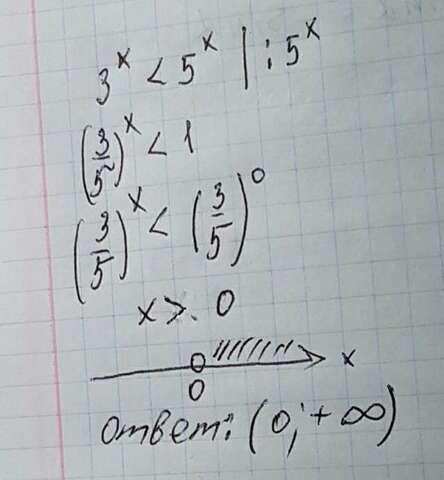 3^x < 5^x | : 5^x
(3/5)^x < 1
(3/5)^x < (3/5)^0
x > 0
0 x
ответ: (0; + ∞)